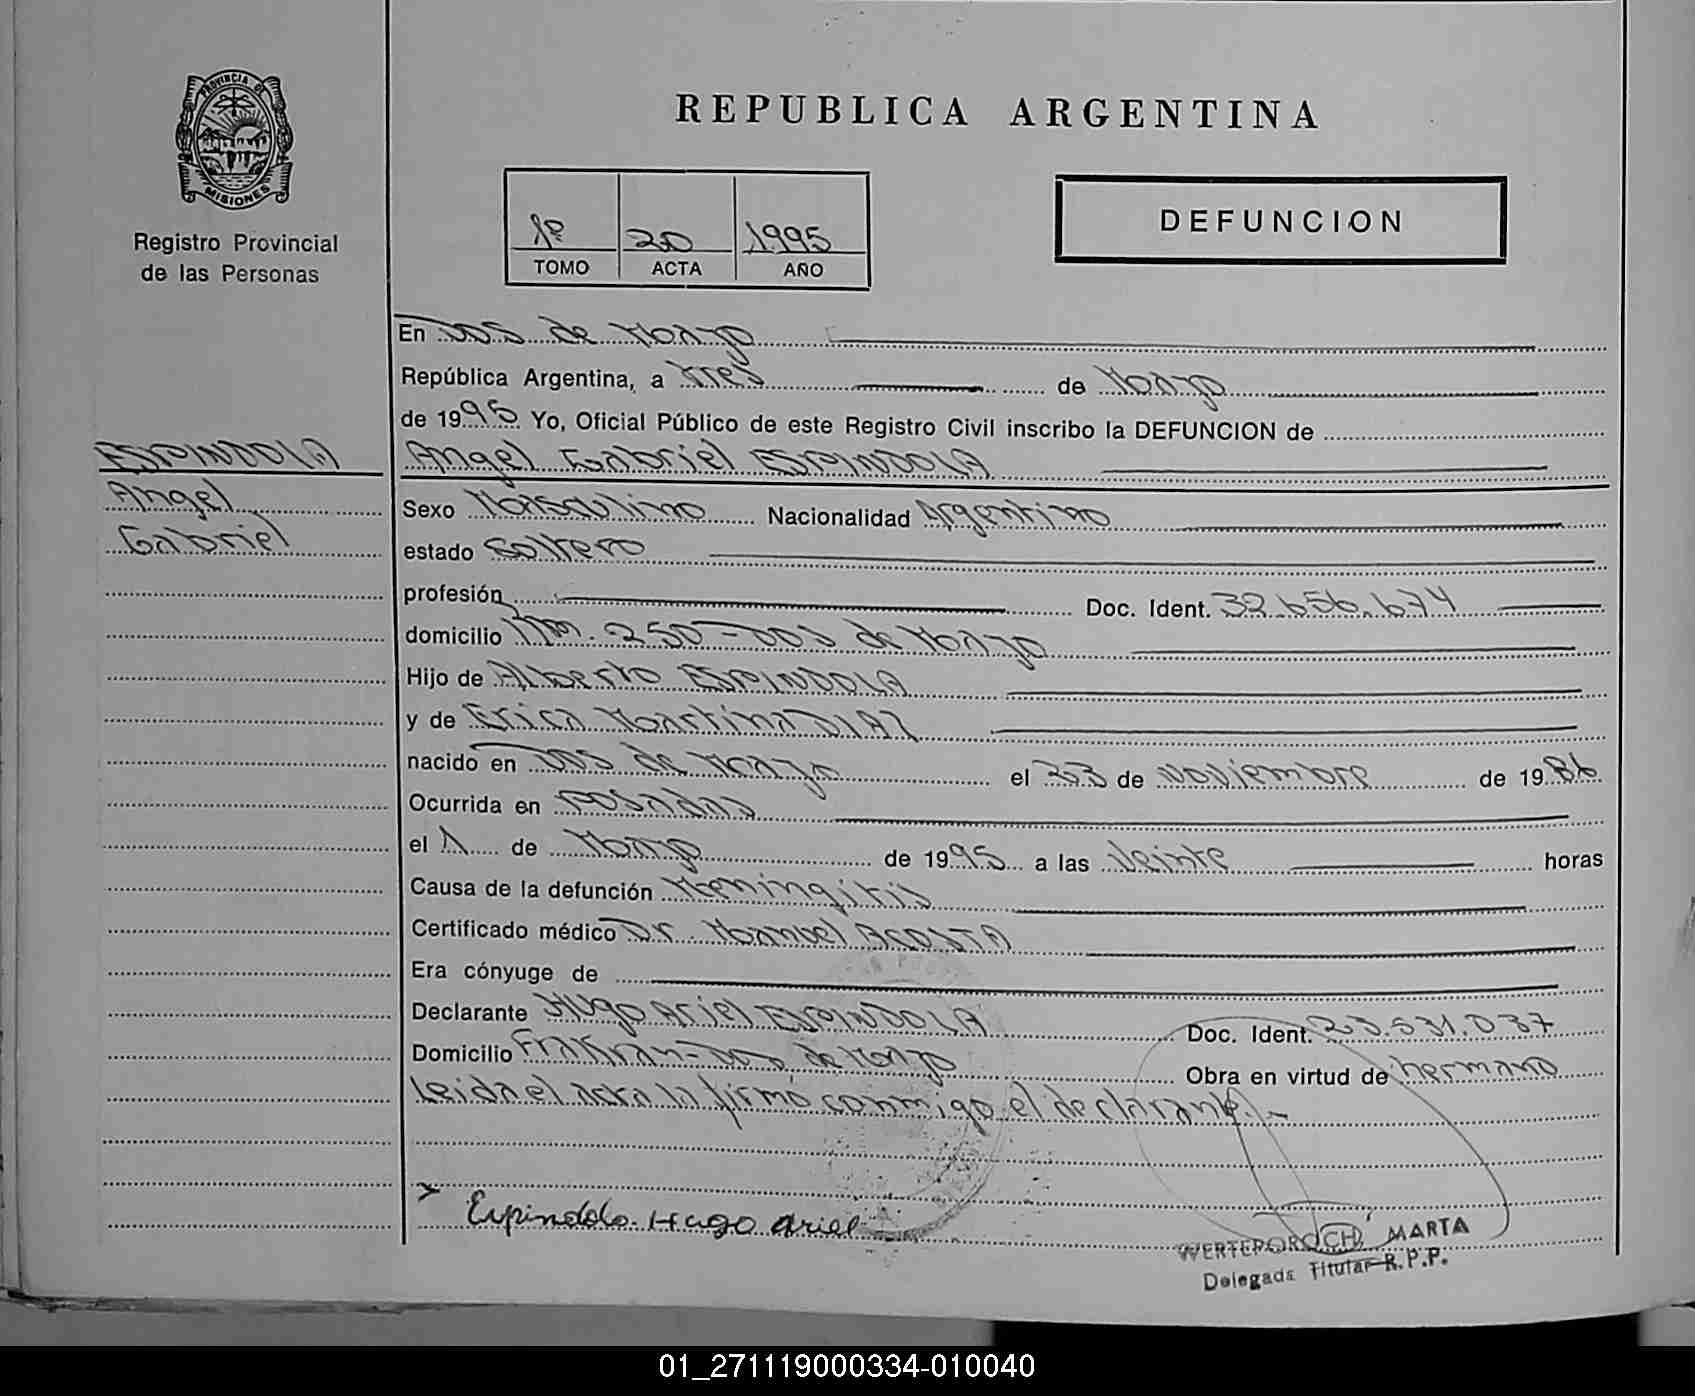 PROVINCIA DE
MISIONES
Registro Provincial
de las Personas
REPUBLICA ARGENTINA
1º 20 1995
TOMO ACTA AÑO
DEFUNCION
En Dos de Marzo
República Argentina, a tres de Marzo
de 1995 Yo, Oficial Público de este Registro Civil inscribo la DEFUNCION de
ESPINDOLA
Angel
Gabriel
Angel Gabriel ESPINDOLA
Sexo Masculino Nacionalidad Argentino
estado soltero
profesión Doc. Ident. 32.656.674
domicilio Km. 250 - Dos de Marzo
Hijo de Alberto ESPINDOLA
y de Erica Martina DIAZ
nacido en Dos de Marzo el de Noviembre de 1986
Ocurrida en POSADAS
el 1 de Marzo de 1995 a las veinte horas
Causa de la defunción Meningitis
Certificado médico Dr. Manuel ACOSTA
Era cónyuge de
Declarante Hugo Ariel ESPINDOLA Doc. Ident. 23.531.037
Domicilio Frakran - Dos de Marzo Obra en virtud de hermano
Leida el acta la firmó conmigo el declarante.-
Espindola Hugo Ariel
WERTEPOROCH, MARTA
Delegada Titular R.P.P.
01_271119000334-010040